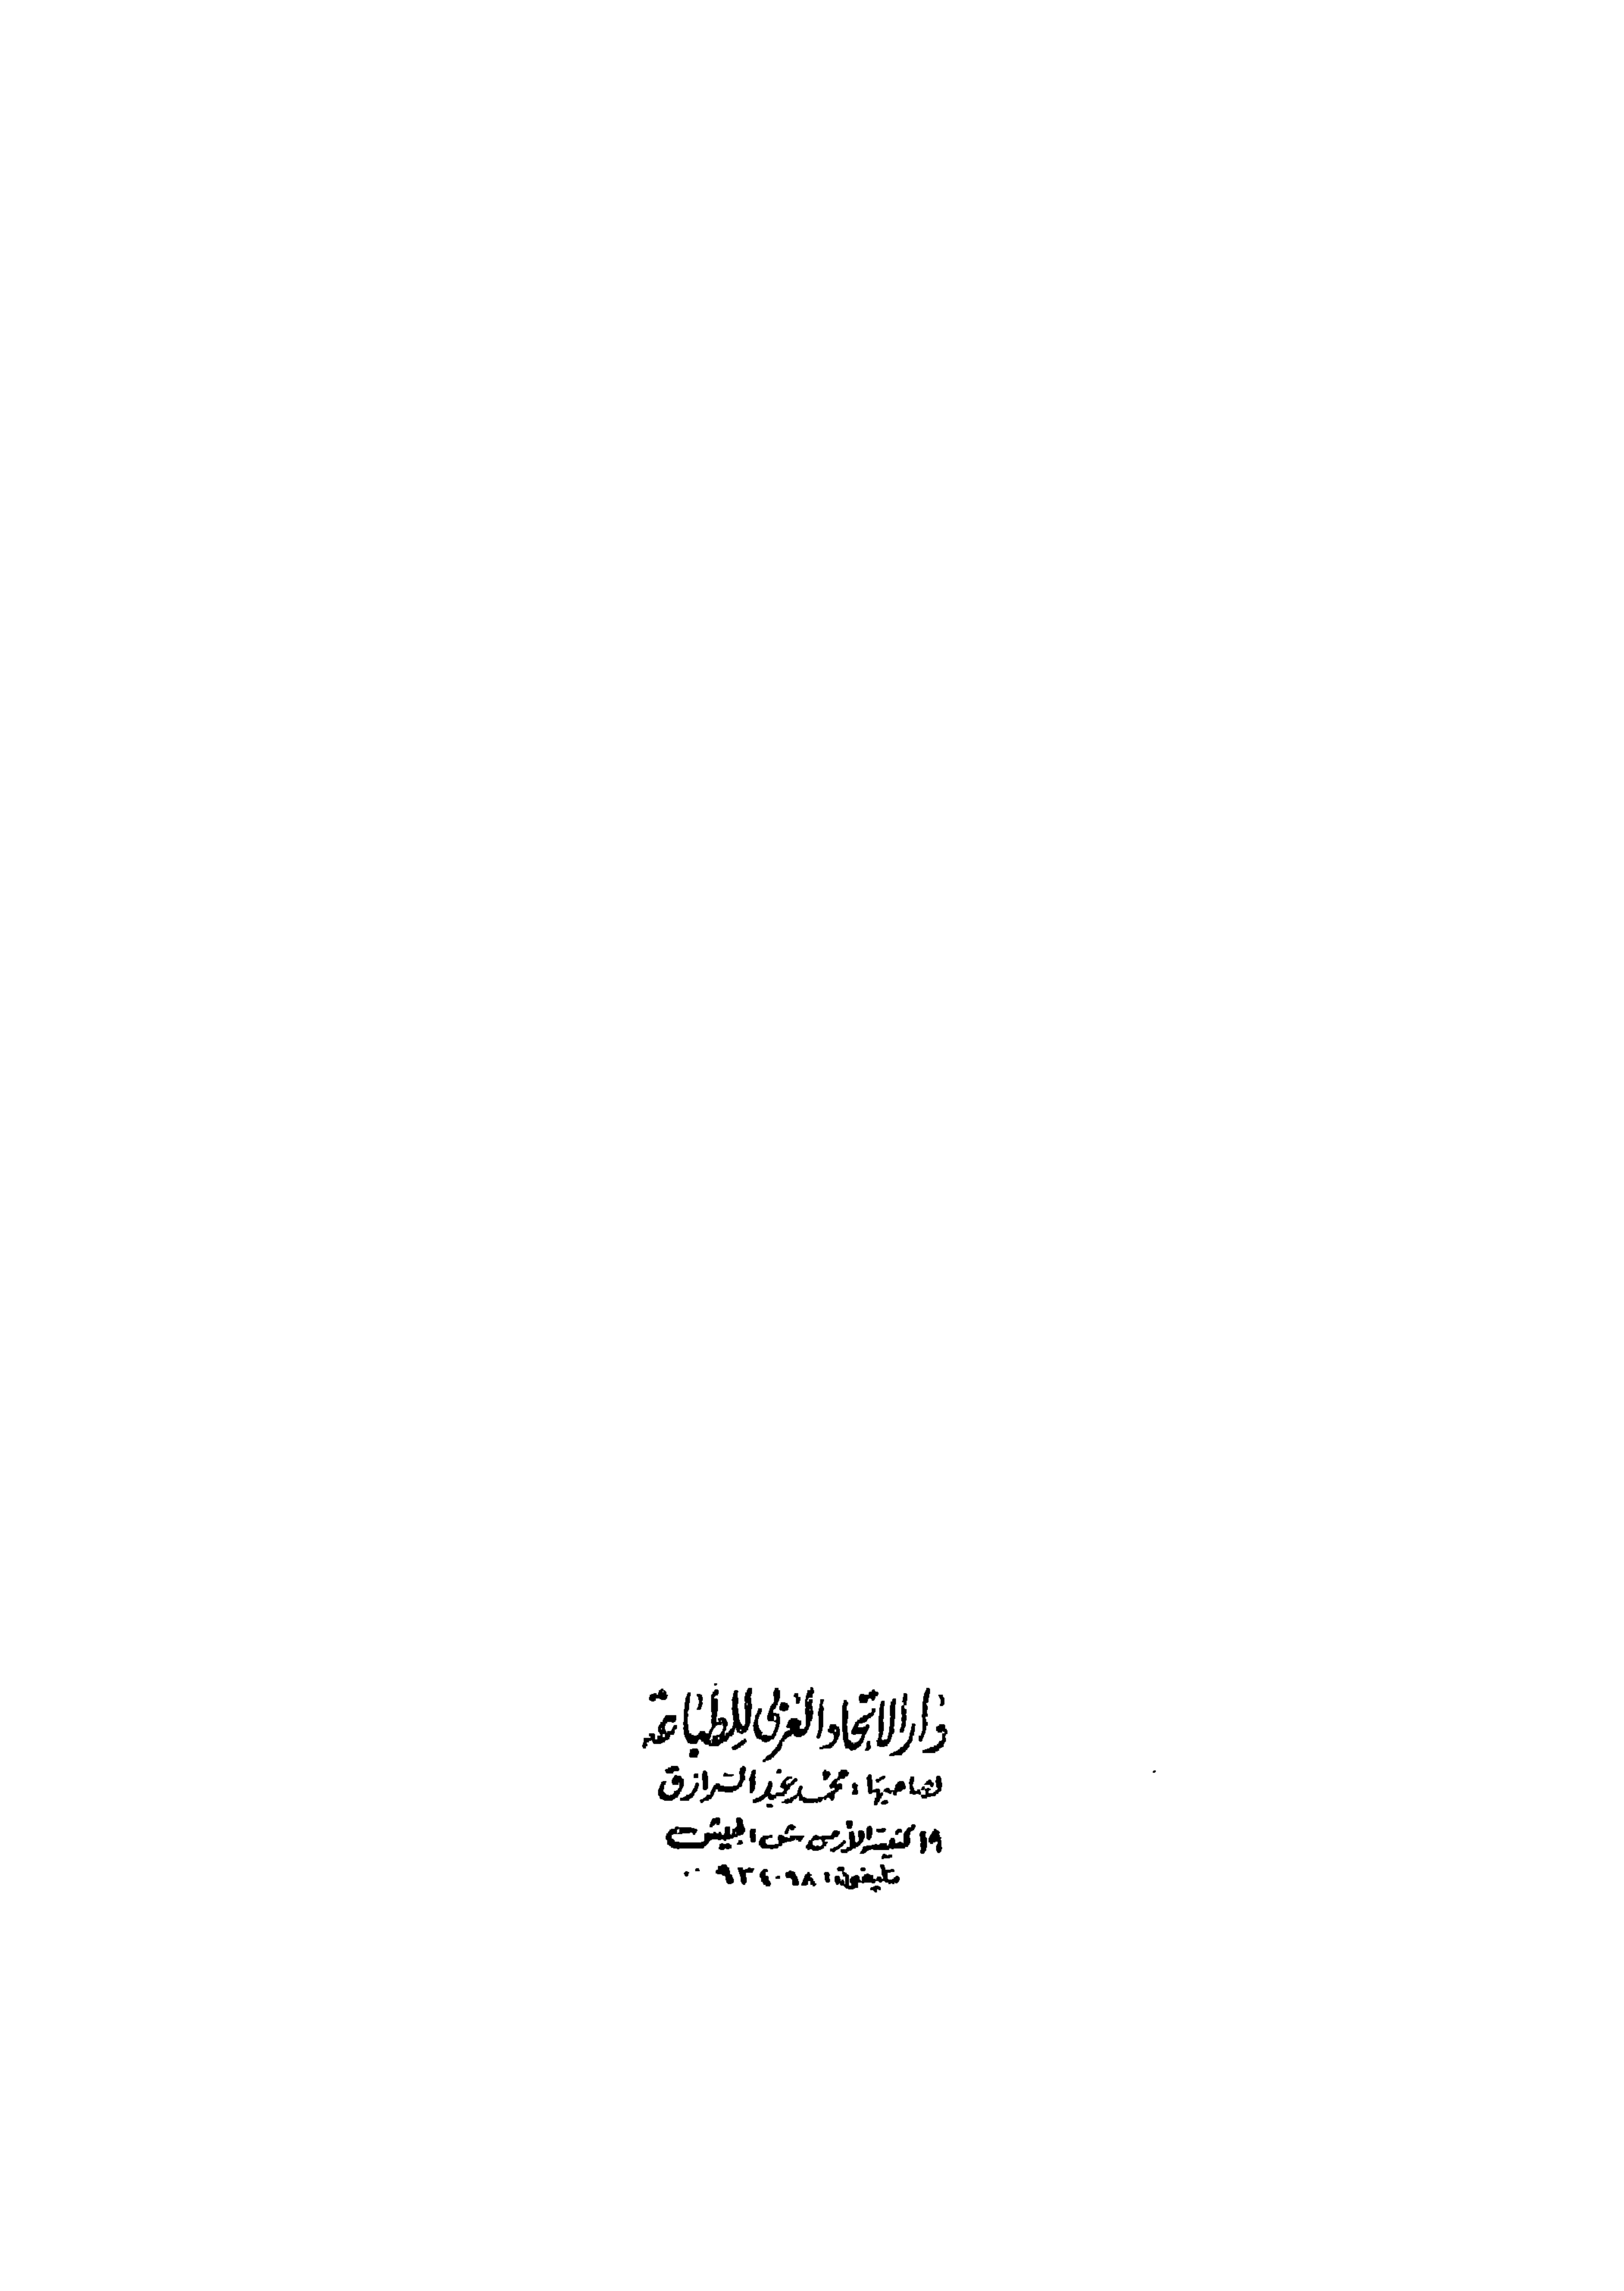 دار الاتحاد العربى للطباعة
لصاحبها : محمد عبد الرازق
١٩ كنيسة الأرمن ش الجيش
تليفون : ٩٣٤٠٩٨